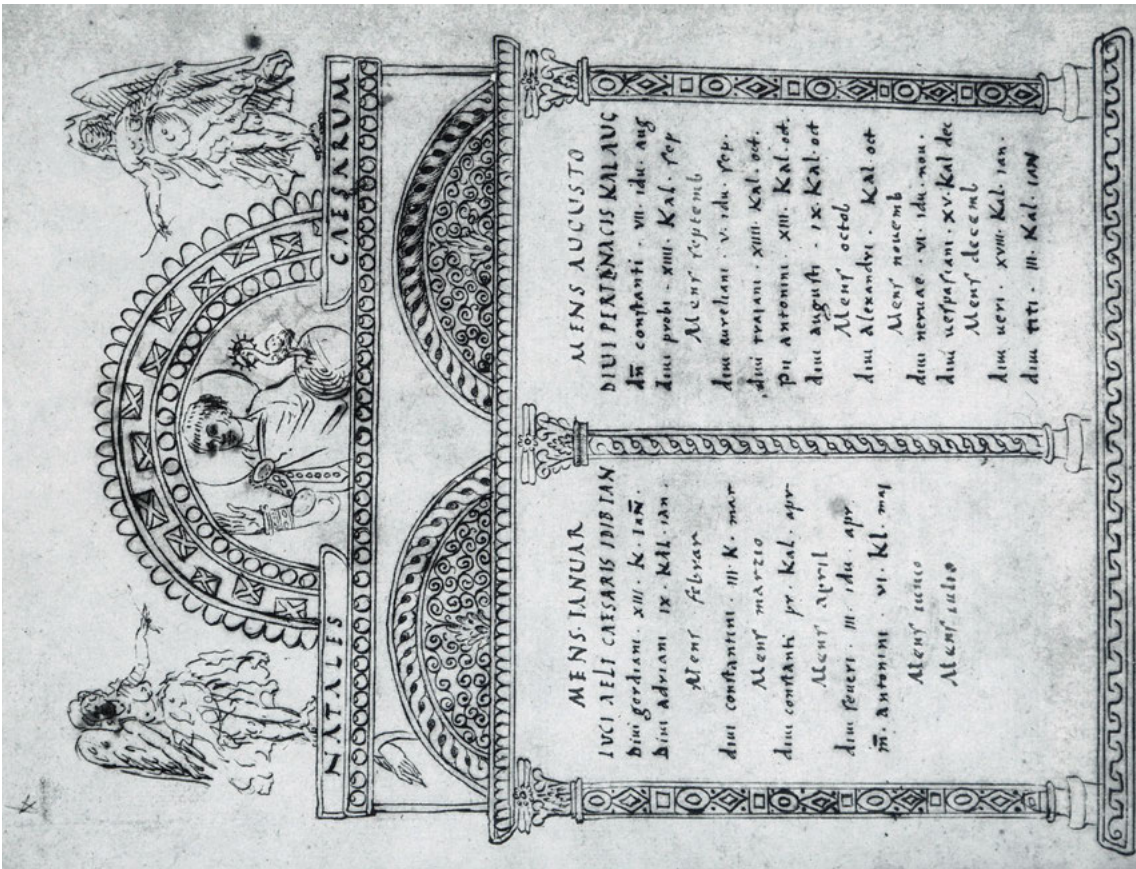 NATALES CAESRUM
MENS·IANUAR
LUCI AELI CAESARIS IDIB IAN
Diui gordiani · XIII · K · IAN̅
Diui adriani IX KAL · ian
Mens febrar
diui constantini · III · K · mar
Mens marzio
diui constanti pr Kal · apr
Mens april
diui seueri · III · idu · apr
m̅ · antonini VI · Kl · maj
Mens iunio
Mens iulio
MENS AUGUSTO
DIUI PERTINACIS KAL AUG
dn̅ constanti · VII · idu · aug
diui probi · XIIII · Kal · sep
Mens septemb
diui aureliani · V · idu · sep ·
diui traiani · XIIII · Kal · oct ·
pii antonini · XIII · Kal · oct ·
diui augusti · IX · Kal · oct
Mens octob
diui alexandri · Kal · oct
Mens nouemb
diui neruae · VI · idu · nou ·
diui uespasiani · XV · Kal dec
Mens decemb
diui ueri · XVIII · Kal · ian ·
diui titi · III · Kal · IAN